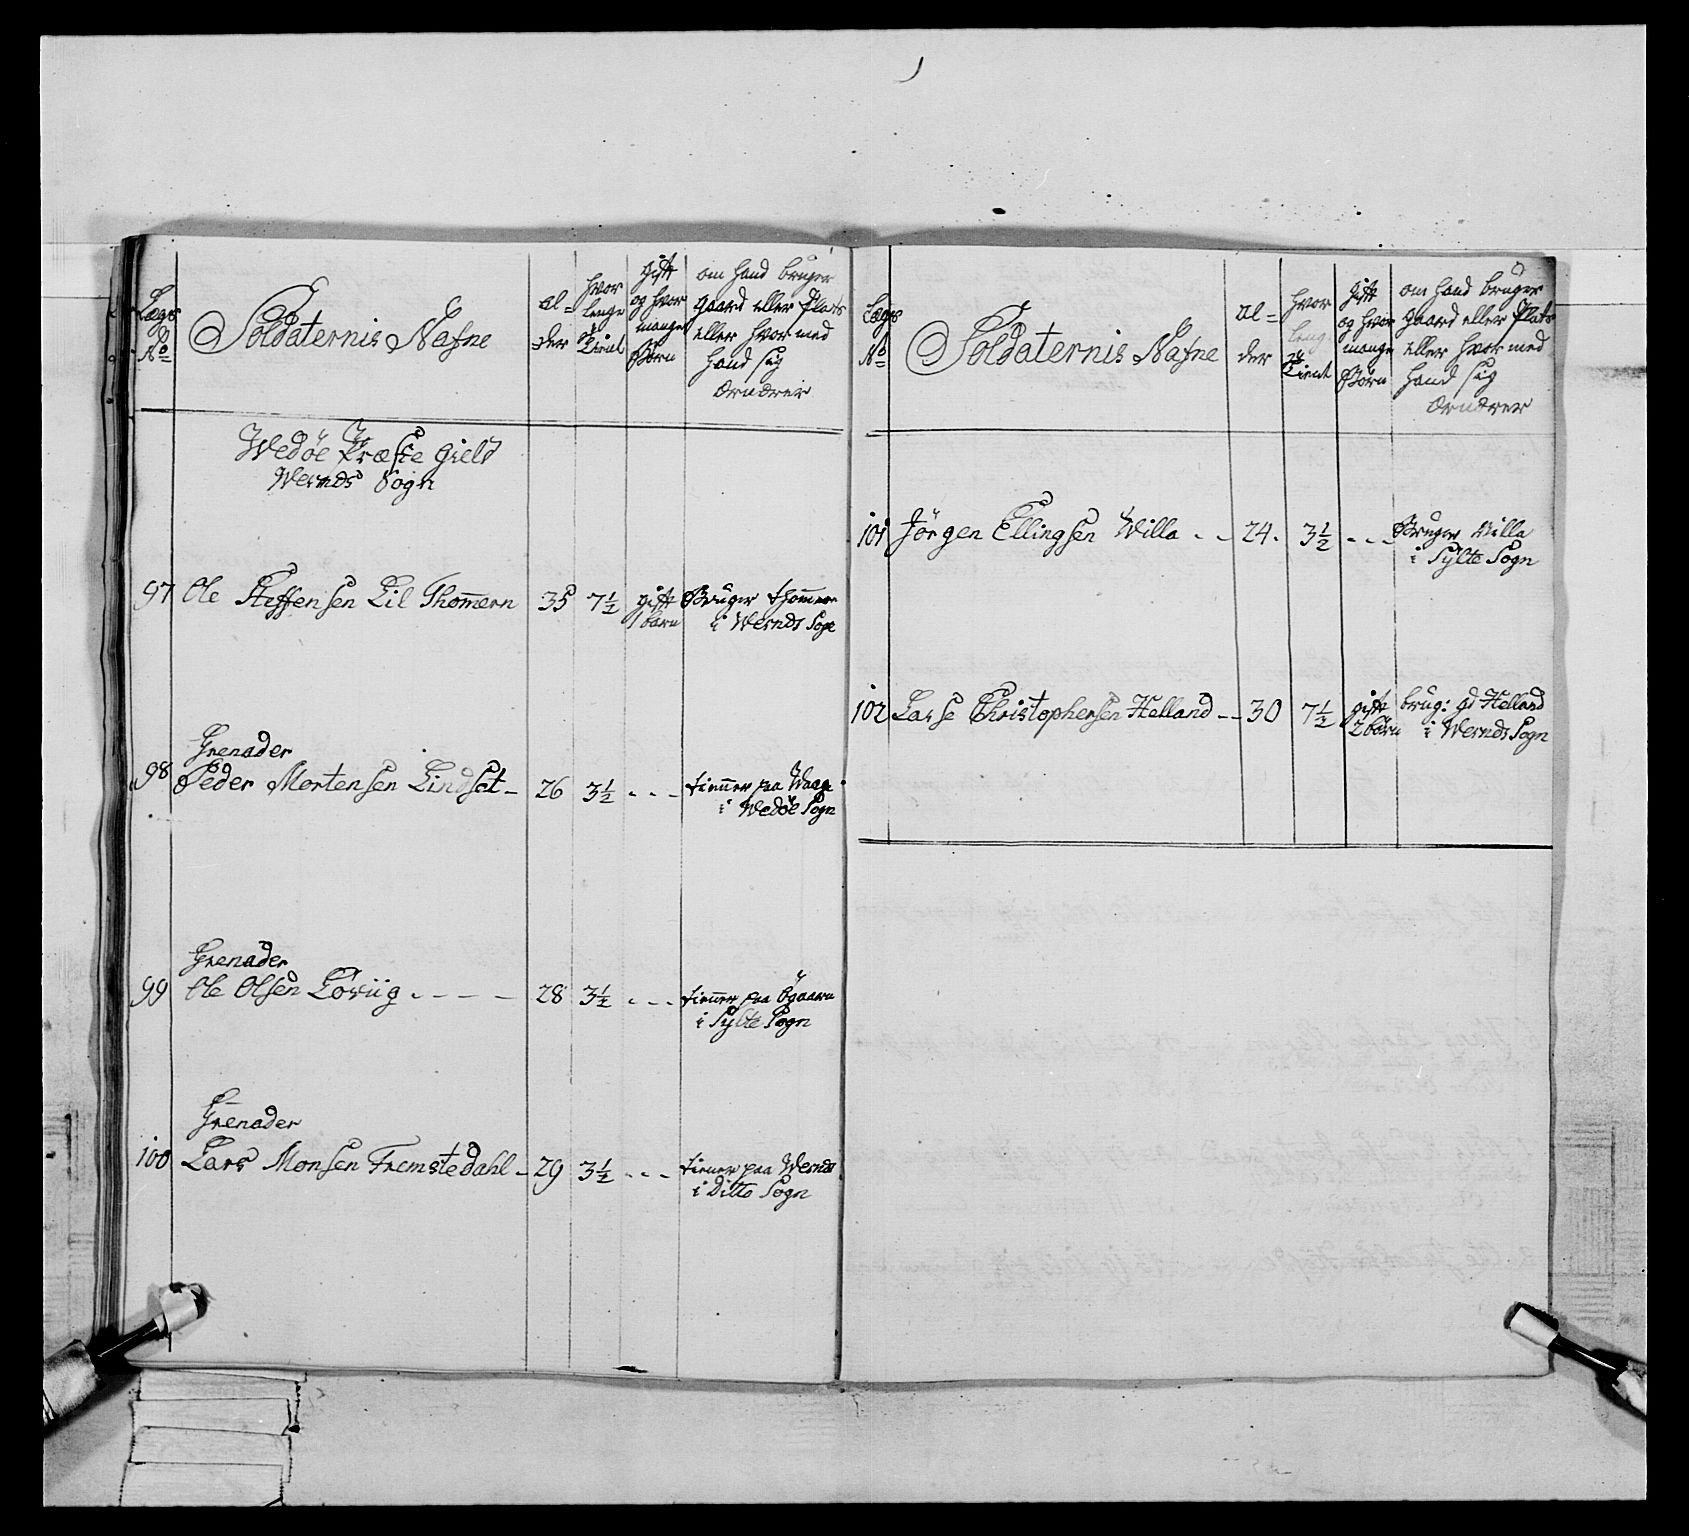 Lægs No
Soldaternis Nafne
al-
der
hvor
lenge
tient
gift
og hvor
mange
Børn
om hand bruger
gaard eller Plats
eller hvor med
hand sig
Ernærer
Wedøe Præste Gield
Wernds Sogn
97 Ole Steffensen Lil Thommern 35 7½ gift Bruger thommer
1 barn i Wernds Sogn
Grenader
98 Peder Mortensen Lindset - 26 3½ - - - tienner paa Waage
i Wedøe Sogn
Grenader
99 Ole Olsen Loviig - - - - 28 3½ - - - tienner paa Øgaarn
i Sylte Sogn
Grenader
100 Lars Monsen Fremstedahl - 29 3½ - - - tiener paa Wernds
i Ditto Sogn
Lægs No
Soldaternis Nafne
al-
der
hvor
leng
tient
gift
og hvor
mange
Børn
om hand bruger
gaard eller Plats
eller hvor med
hand sig
Ernærer
101 Jörgen Ellingsen Willa - - 24. 3½ - - - Bruger Willa
i Sylte Sogn
102 Larse Christophersen Helland - - 30 7½ gift brug: gd Helland
2 børn i Wernds Sogn